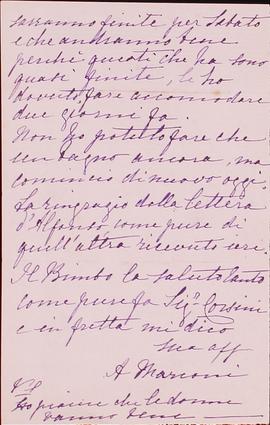 saranno finite per Sabato
e che andranno bene
perchè questi che ha sono
quasi finite, le ho
dovuto fare accomodare
due giorni fa.
Non ho potuto fare che
un bagno ancora, ma
comincio di nuovo oggi.
La ringrazio della lettera
d'Alfonso come pure di
quell'altra ricevuta ieri.
Il Bimbo la saluta tanto
come pure fa Sigra Corsini
e in fretta mi dico
Sua aff
A Marconi
PS
Ho piacere che le donne
vanno bene